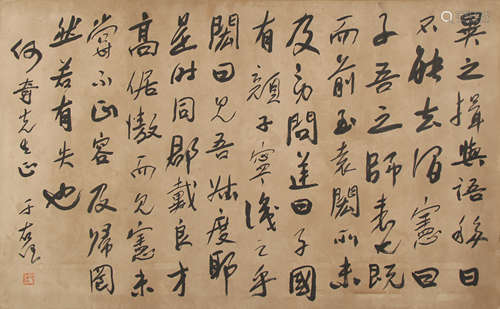 異之揖與語移日
不能去謂憲曰
子吾之師表也既
而前至袁閎所未
及勞問逆曰子國
有顏子寧識之乎
閎曰見吾叔度耶
是時同郡戴良才
高倨傲而見憲未
嘗不正容及歸罔
然若有失也
先生正
于右任